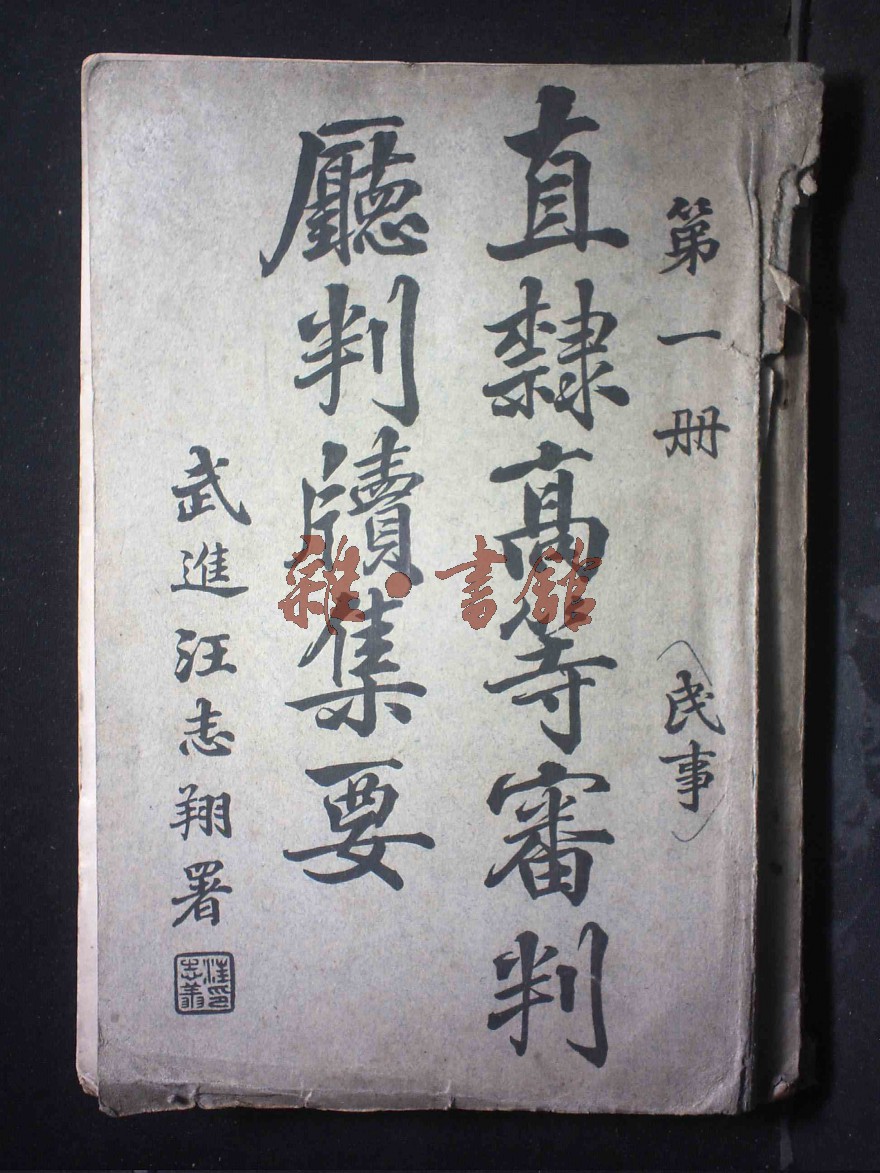 第一册（民事）
直隸高等審判
廳判牘集要
武進汪志翔署
汪印志翔
雜·書館